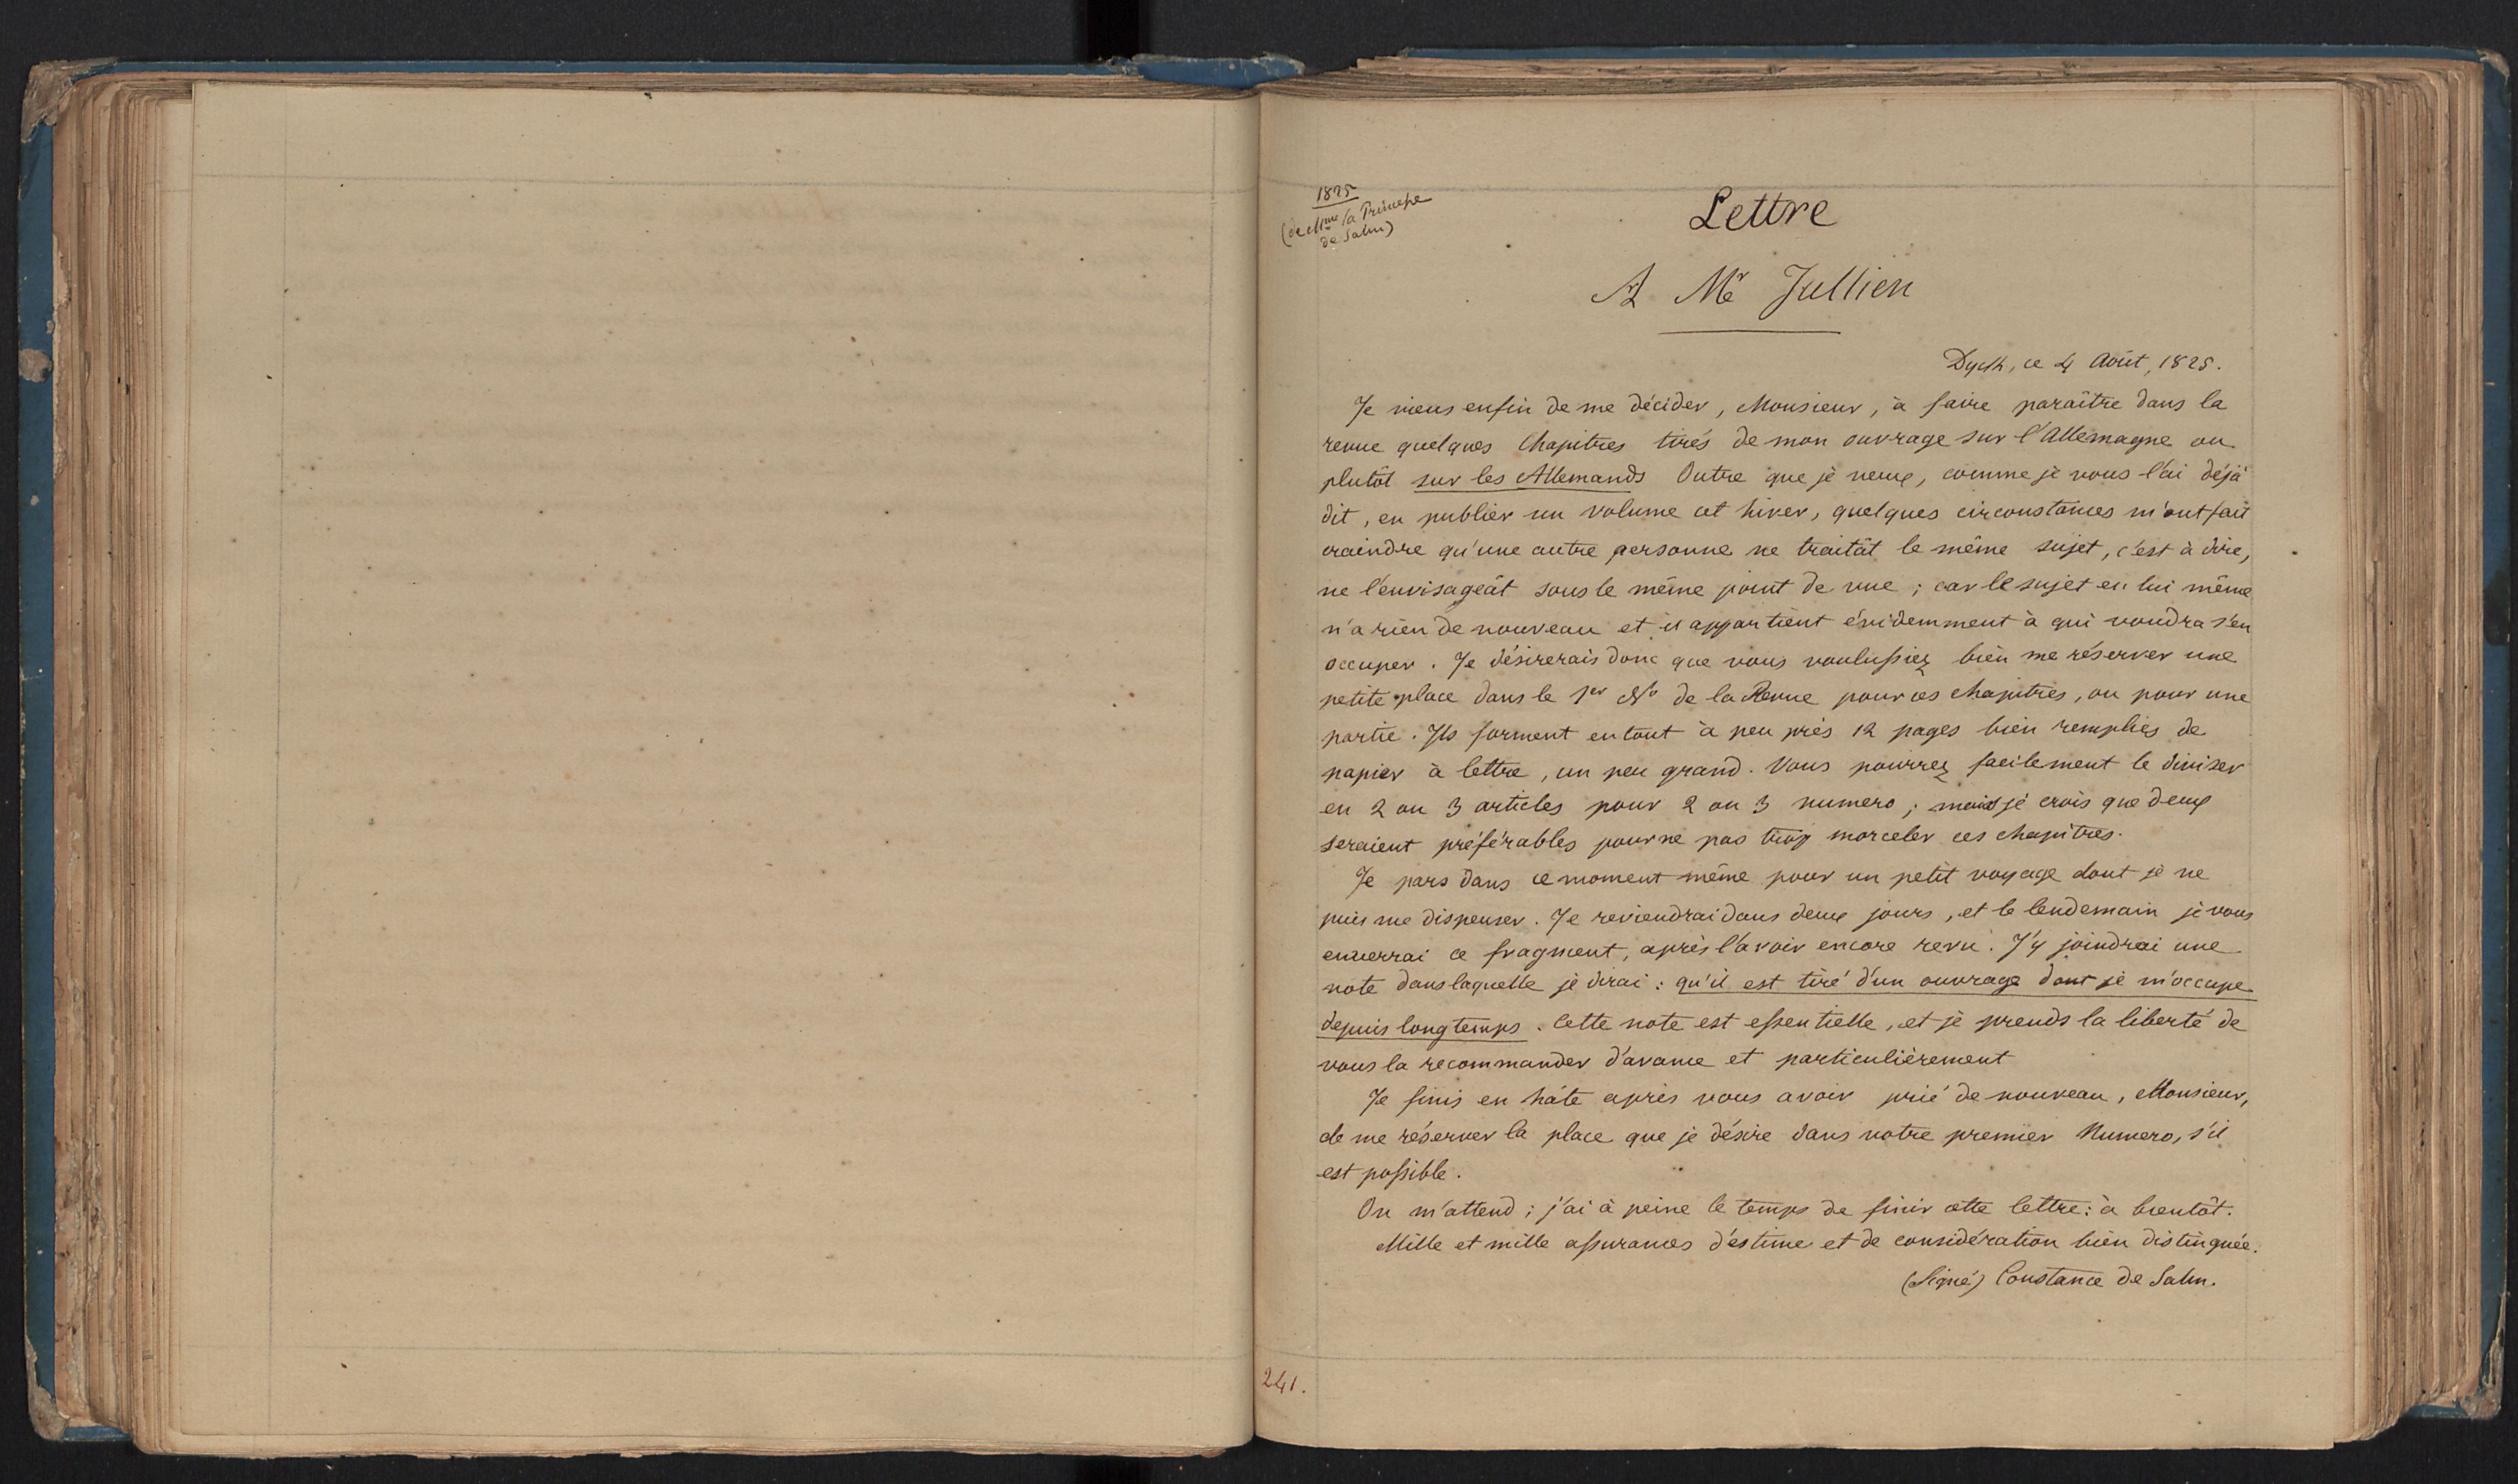 1825
(de Mme la Princesse
de Salm)
Lettre
A Mr Jullien
Dyck, ce 4 Août, 1825.
Je viens enfin de me décider, Monsieur, à faire paraître dans la
revue quelques Chapitres tirés de mon ouvrage sur l'Allemagne ou
plutôt sur les Allemands Outre que je veux, comme je vous l'ai déjà
dit, en publier un volume cet hiver, quelques circonstances m'ont fait
craindre qu'une autre personne ne traitât le même sujet, c'est à dire,
ne l'envisageât sous le même point de vue ; car le sujet en lui même
n'a rien de nouveau et il appartient évidemment à qui voudra s'en
occuper. Je désirerais donc que vous voulussiez bien me réserver une
petite place dans le 1er No de la Revue pour ces chapitres, ou pour une
partie. Ils forment en tout à peu près 12 pages bien remplies de
papier à lettre, un peu grand. Vous pourrez facilement le diviser
en 2 ou 3 articles pour 2 ou 3 numero ; mais je crois que deux
seraient préférables pour ne pas trop morceler ces chapitres.
Je pars dans ce moment même pour un petit voyage dont je ne
puis me dispenser. Je reviendrai dans deux jours, et le lendemain je vous
enverrai ce fragment, après l'avoir encore revu. J'y joindrai une
note dans laquelle je dirai : qu'il est tiré d'un ouvrage dont je m'occupe
depuis longtemps. Cette note est essentielle, et je prends la liberté de
vous la recommander d'avance et particulièrement
Je finis en hâte après vous avoir prié de nouveau, Monsieur,
de me réserver la place que je désire dans votre premier Numero, s'il
est possible.
On m'attend ; j'ai à peine le temps de finir cette lettre : à bientôt.
Mille et mille assurances d'estime et de considération bien distinguée.
(Signé) Constance de Salm.
241.